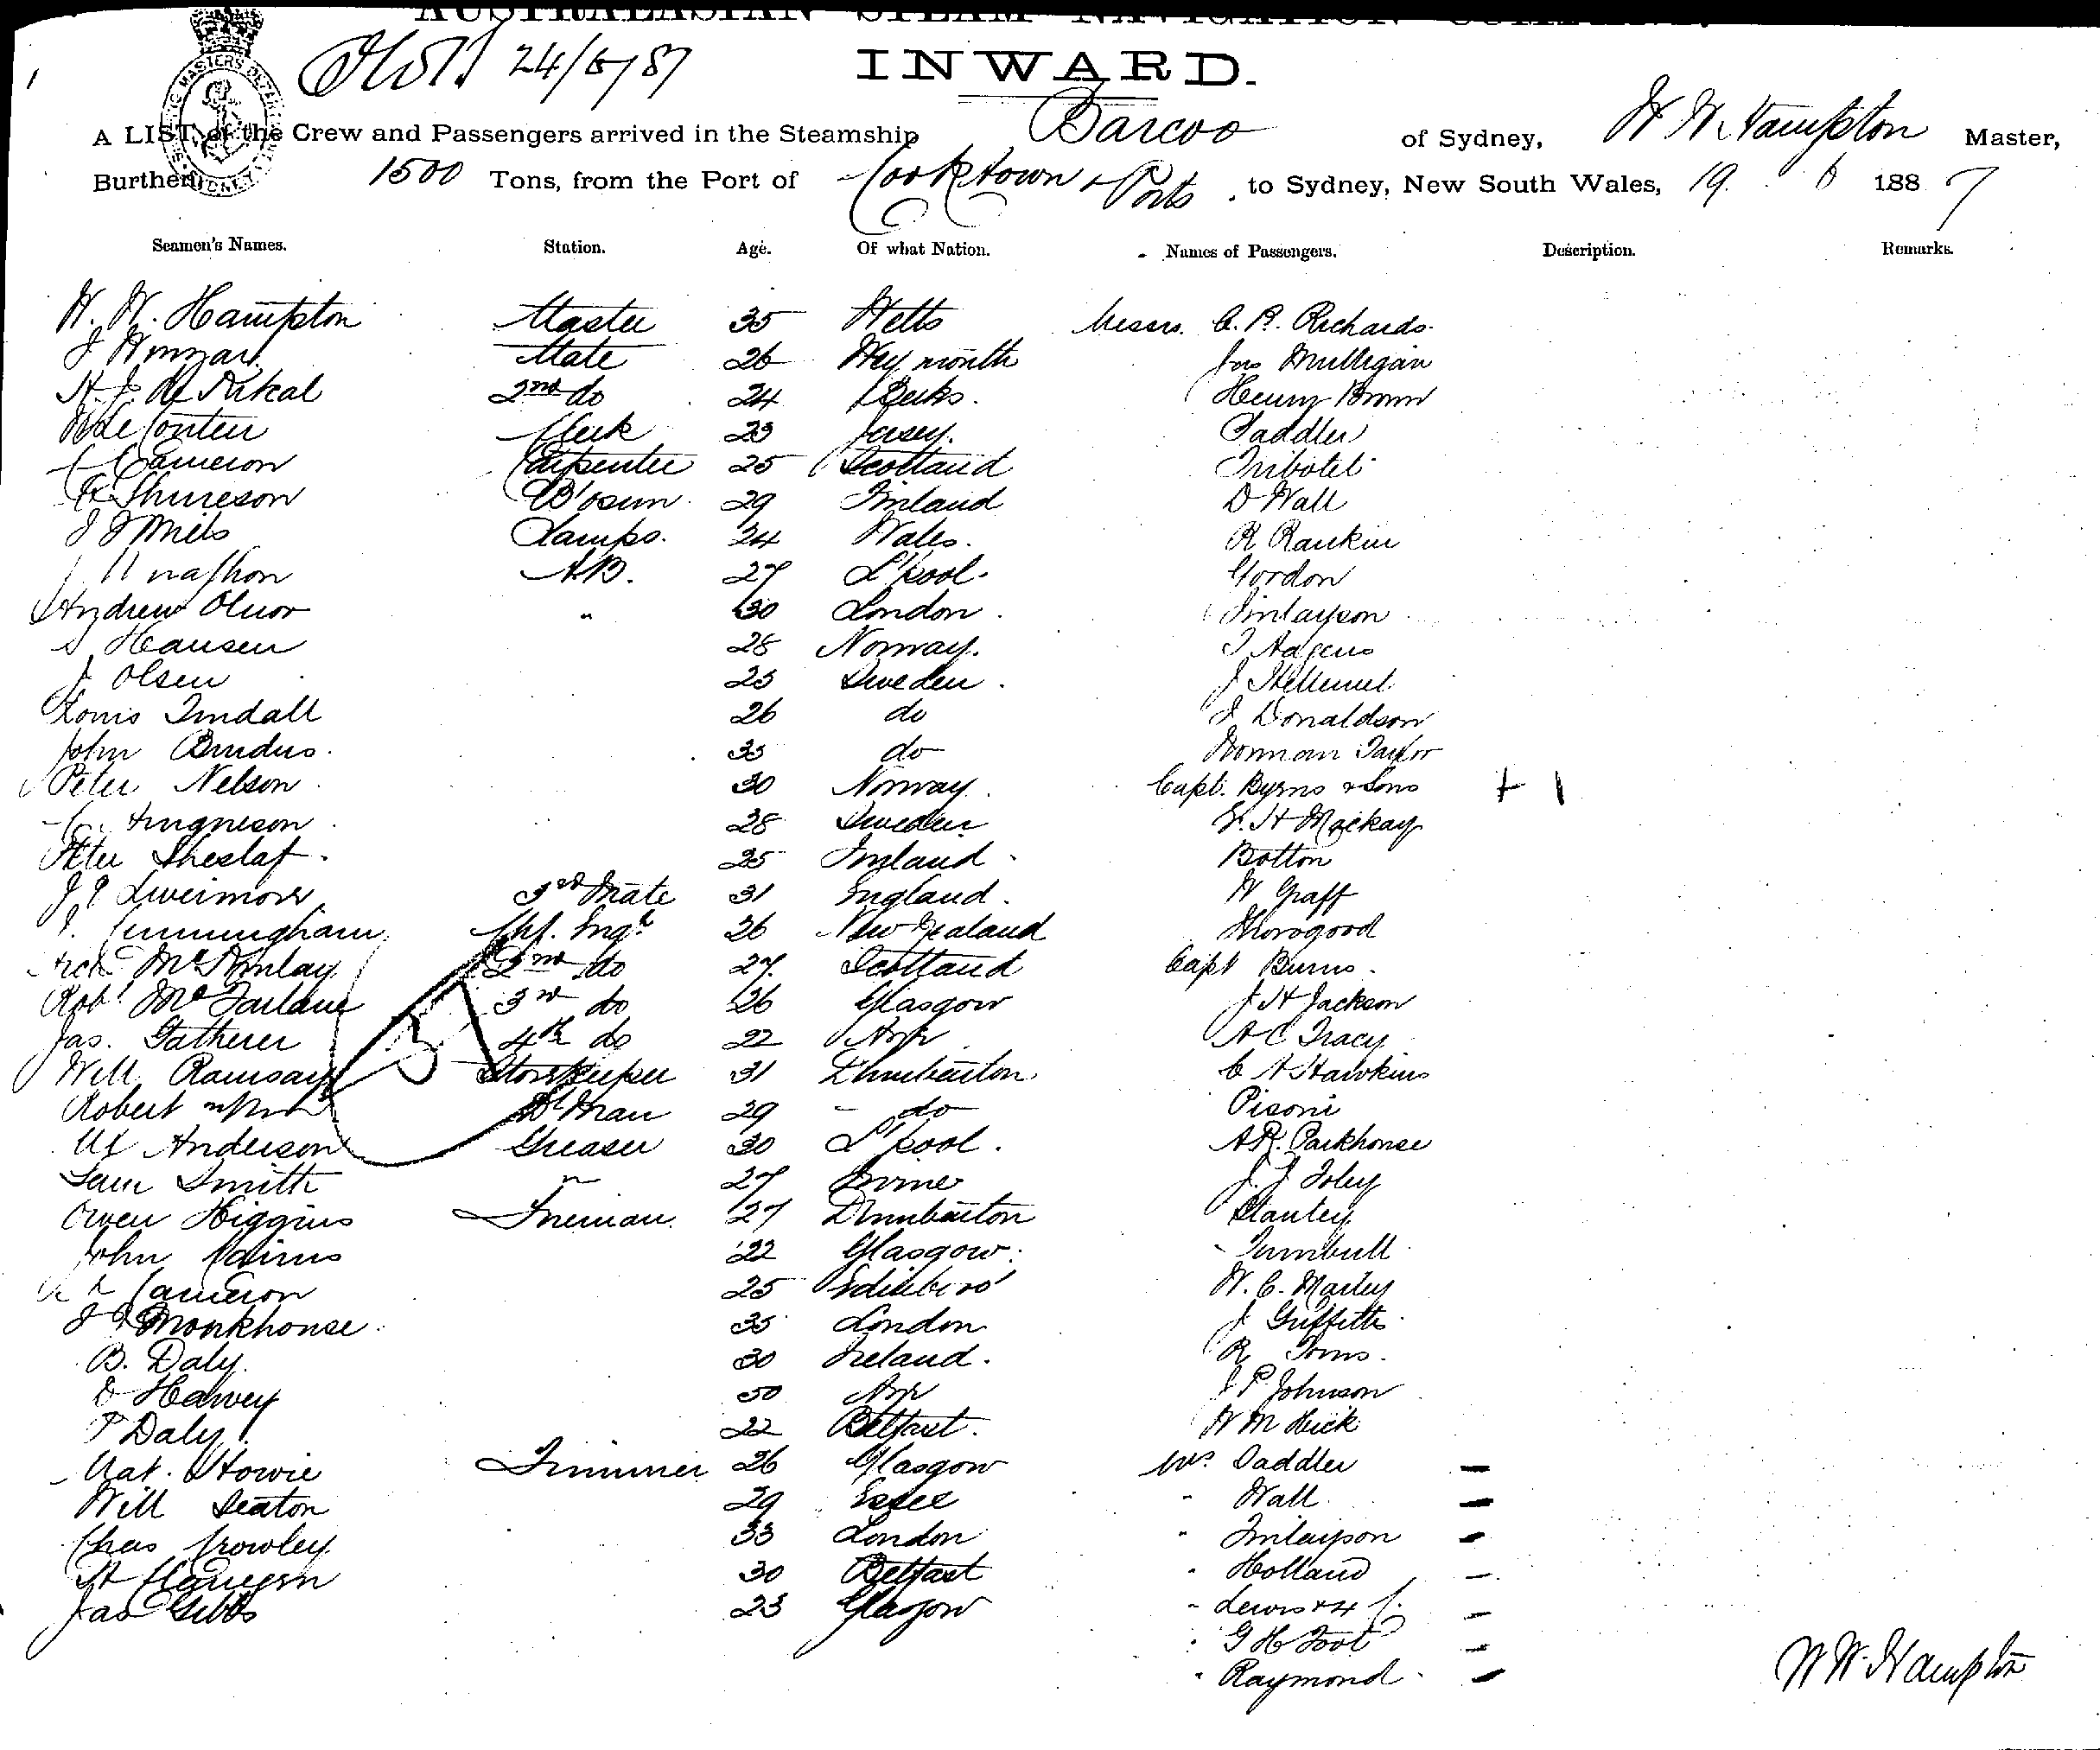 AUSTRALASIAN STEAM NAVIGATION
24/6/87
INWARD.
A LIST of the Crew and Passengers arrived in the Steamship Barcoo of Sydney, W. W. Hampton Master,
Burthen 1500 Tons, from the Port of Cooktown & Ports to Sydney, New South Wales, 19 6 1887
Seamen's Names. Station. Age. Of what Nation. Names of Passengers. Description. Remarks.
W. W. Hampton Master 35 Wells Messrs. C. R. Richards
J Mate 26 Weymouth Jas Mulligan
2nd do 24 Berks. Henry Brown
Clerk 23 Jersey. Saddler
C Cameron Carpenter 25 Scotland Tribolet
B'osun 29 Finland D Wall
Lamps. 24 Wales. R Rankin
A.B. 27 L'pool. Gordon
Andrew " 30 London. Finlayson
Hansen 28 Norway.
J Olsen 25 Sweden. J
Louis Tindall 26 do J Donaldson
John 35 do Norman Taylor
Peter Nelson 30 Norway. Capt. Byrns & Sons + 1
28 Sweden Mackay
Peter 25 Finland Botton
3rd Mate 31 England. W Graff
Cunningham Chf. Engr 26 New Zealand Thorogood
Arch McKinlay 2nd do 27. Scotland Capt Burns.
Robt McFarlane 3rd do 26 Glasgow J H Jackson
Jas. Gatherer 4th do 22 Ayr A C Tracy
Will Ramsay Storekeeper 31 Dumbarton C A Hawkins
Robert 29 - do Pisoni
Anderson Greaser 30 L'pool. A R. Parkhouse
Sam Smith " 27 Irvine J. J Foley
Owen Higgins Fireman. 27 Dumbarton Stanley
John Cairns 22 Glasgow. Turnbull
Cameron 25 Edinboro' W. C. Marley
Monkhouse 35 London J Griffiths
B. Daly. 30 Ireland. R Toms.
D Harvey 50 Ayr J P Johnson
P Daly 22 Belfast. W M Hick
Nat. Howie Trimmer 26 Glasgow Mrs. Saddler
Will Seaton 29 Essex " Wall
Chas Crowley 33 London " Finlayson
30 Belfast " Holland
Jas Gibbs 23 Glasgow " Lewis & 4
" G H Foot
" Raymond
W W. Hampton